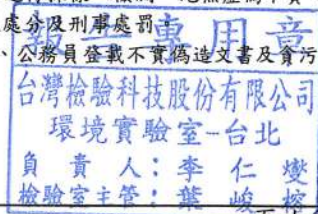 處分及刑事處罰。
、公務員登載不實偽造文書及貪污
報告專用章
台灣檢驗科技股份有限公司
環境實驗室-台北
負責人：李仁燮
檢驗室主管：葉峻榕